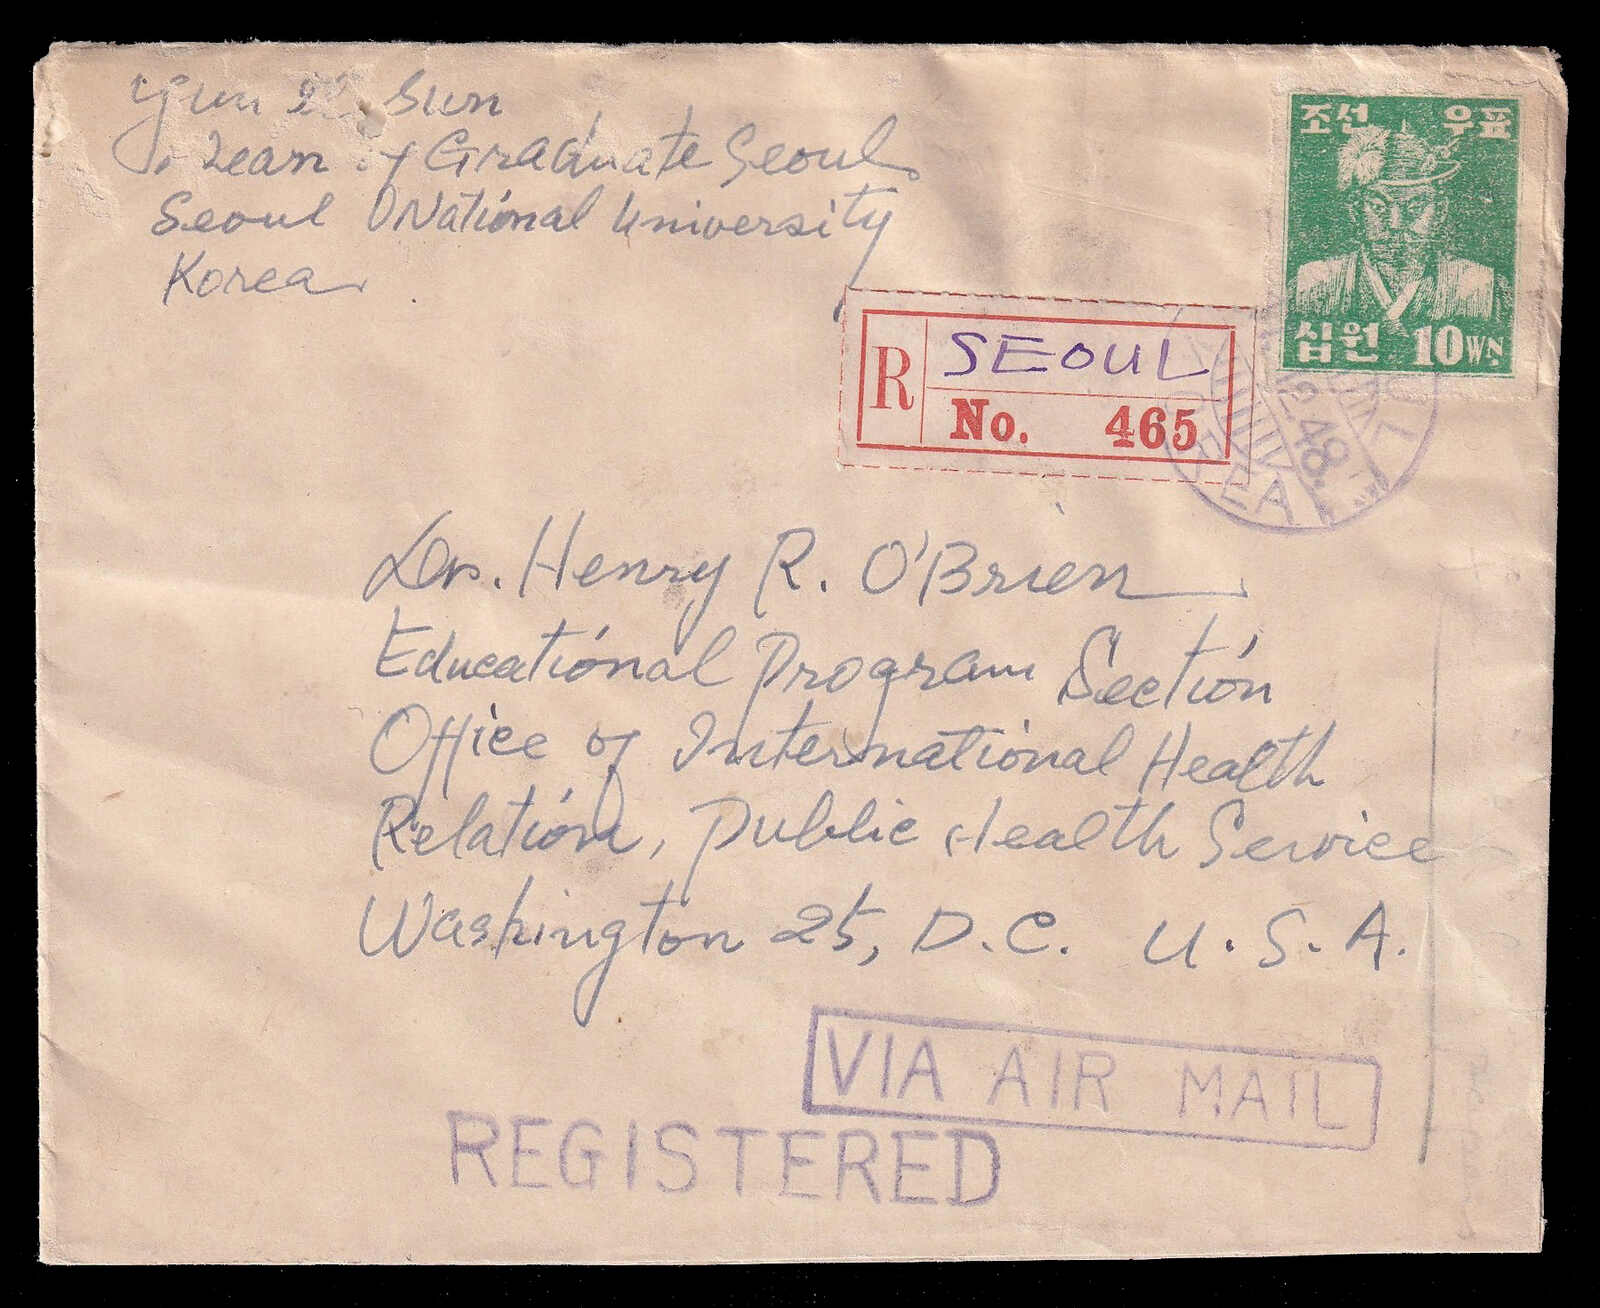 Yun Il Sun
Dean of Graduate Seoul
Seoul National University
Korea
조선 우표
십원 10WN.
R SEOUL
No. 465
SEOUL
12. 48
KOREA
Dr. Henry R. O'Brien
Educational Program Section
Office of International Health
Relation, Public Health Service
Washington 25, D.C. U.S.A.
VIA AIR MAIL
REGISTERED